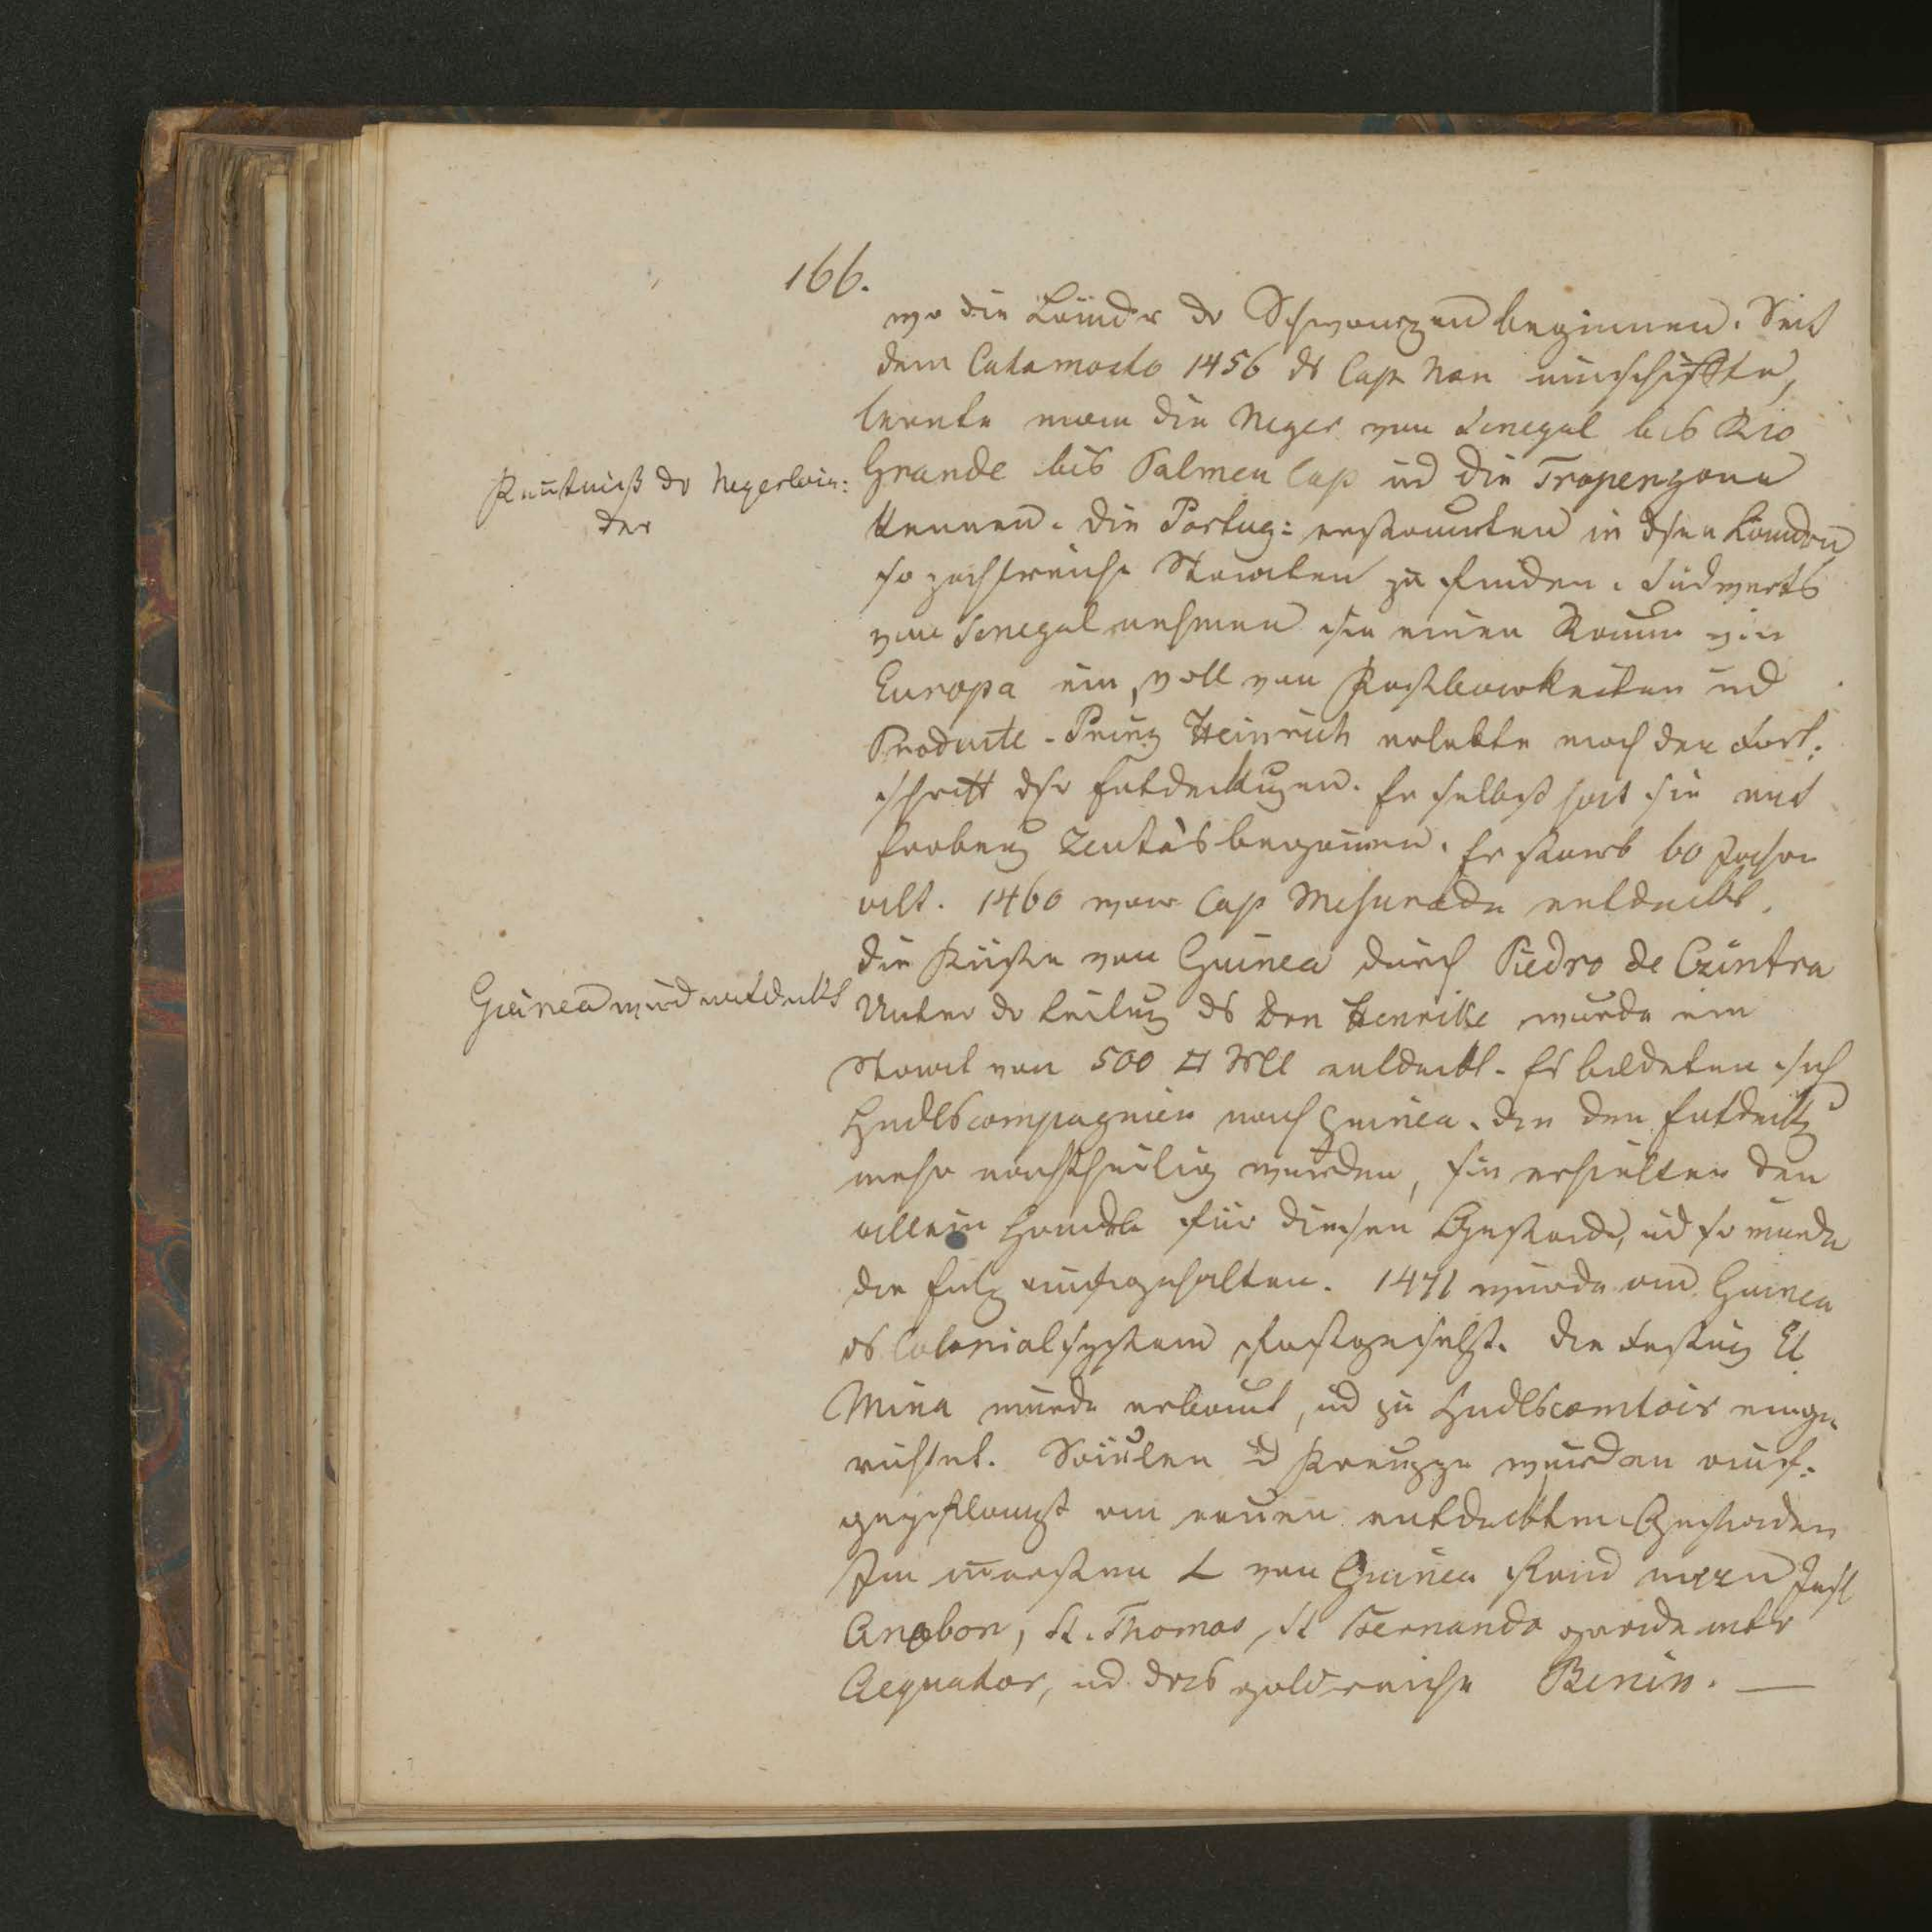 166.
wo die Länder dr Schwarzen beginnen. Seit
dem Catamosto 1456 ds Cap Non umschiffte,
lernte man die Neger vom Senegal bis Rio
Grande bis Palmen Cap ud die Tropenzone
kennen. Die Portug: erstaunten in dsen Ländern
so zahlreiche Staaten zu finden. Südwerts
vom Senegal nehmen sie einen Raum wie
Europa ein, voll von Kostbarkeiten ud
Producte. Prinz Heinrich erlebte noch den Fort:
schritt dsr Entdeckungen. Er selbst hat sie mit
Eroberg Zeuta's begonnen. Er starb 60 Jahre
alt. 1460 war Cap Mesurado entdeckt.
die Küste von Guinea durch Piedro de Czintra
Unter dr Leitung ds Don Henrike wurde ein
Staat von 500 □ Ml entdeckt. Es bildeten sich
Hndlscompagnien nach Guinea. die den Entdeckg
mehr nachtheilig wurden, sie erhielten den
allein Handel für diesen Gestade, ud so wurde
die aufgehalten. 1471 wurde von Guinea
ds Colonialsystem festgesetzt. Die Festung El
Mina wurde erbaut, ud zu Hndlscomtoir einge
richtet. Säulen ud Kreuze wurden auf:
gepflanzt am neuen entdeckten Gestaden
Im von Guinea fand man Insl
Anobon, St. Thomas, St Fernando gerade untr
Aequator, ud das goldreiche Benin. —
Kentniß dr Negerlän:
der
Guinea wird entdeckt